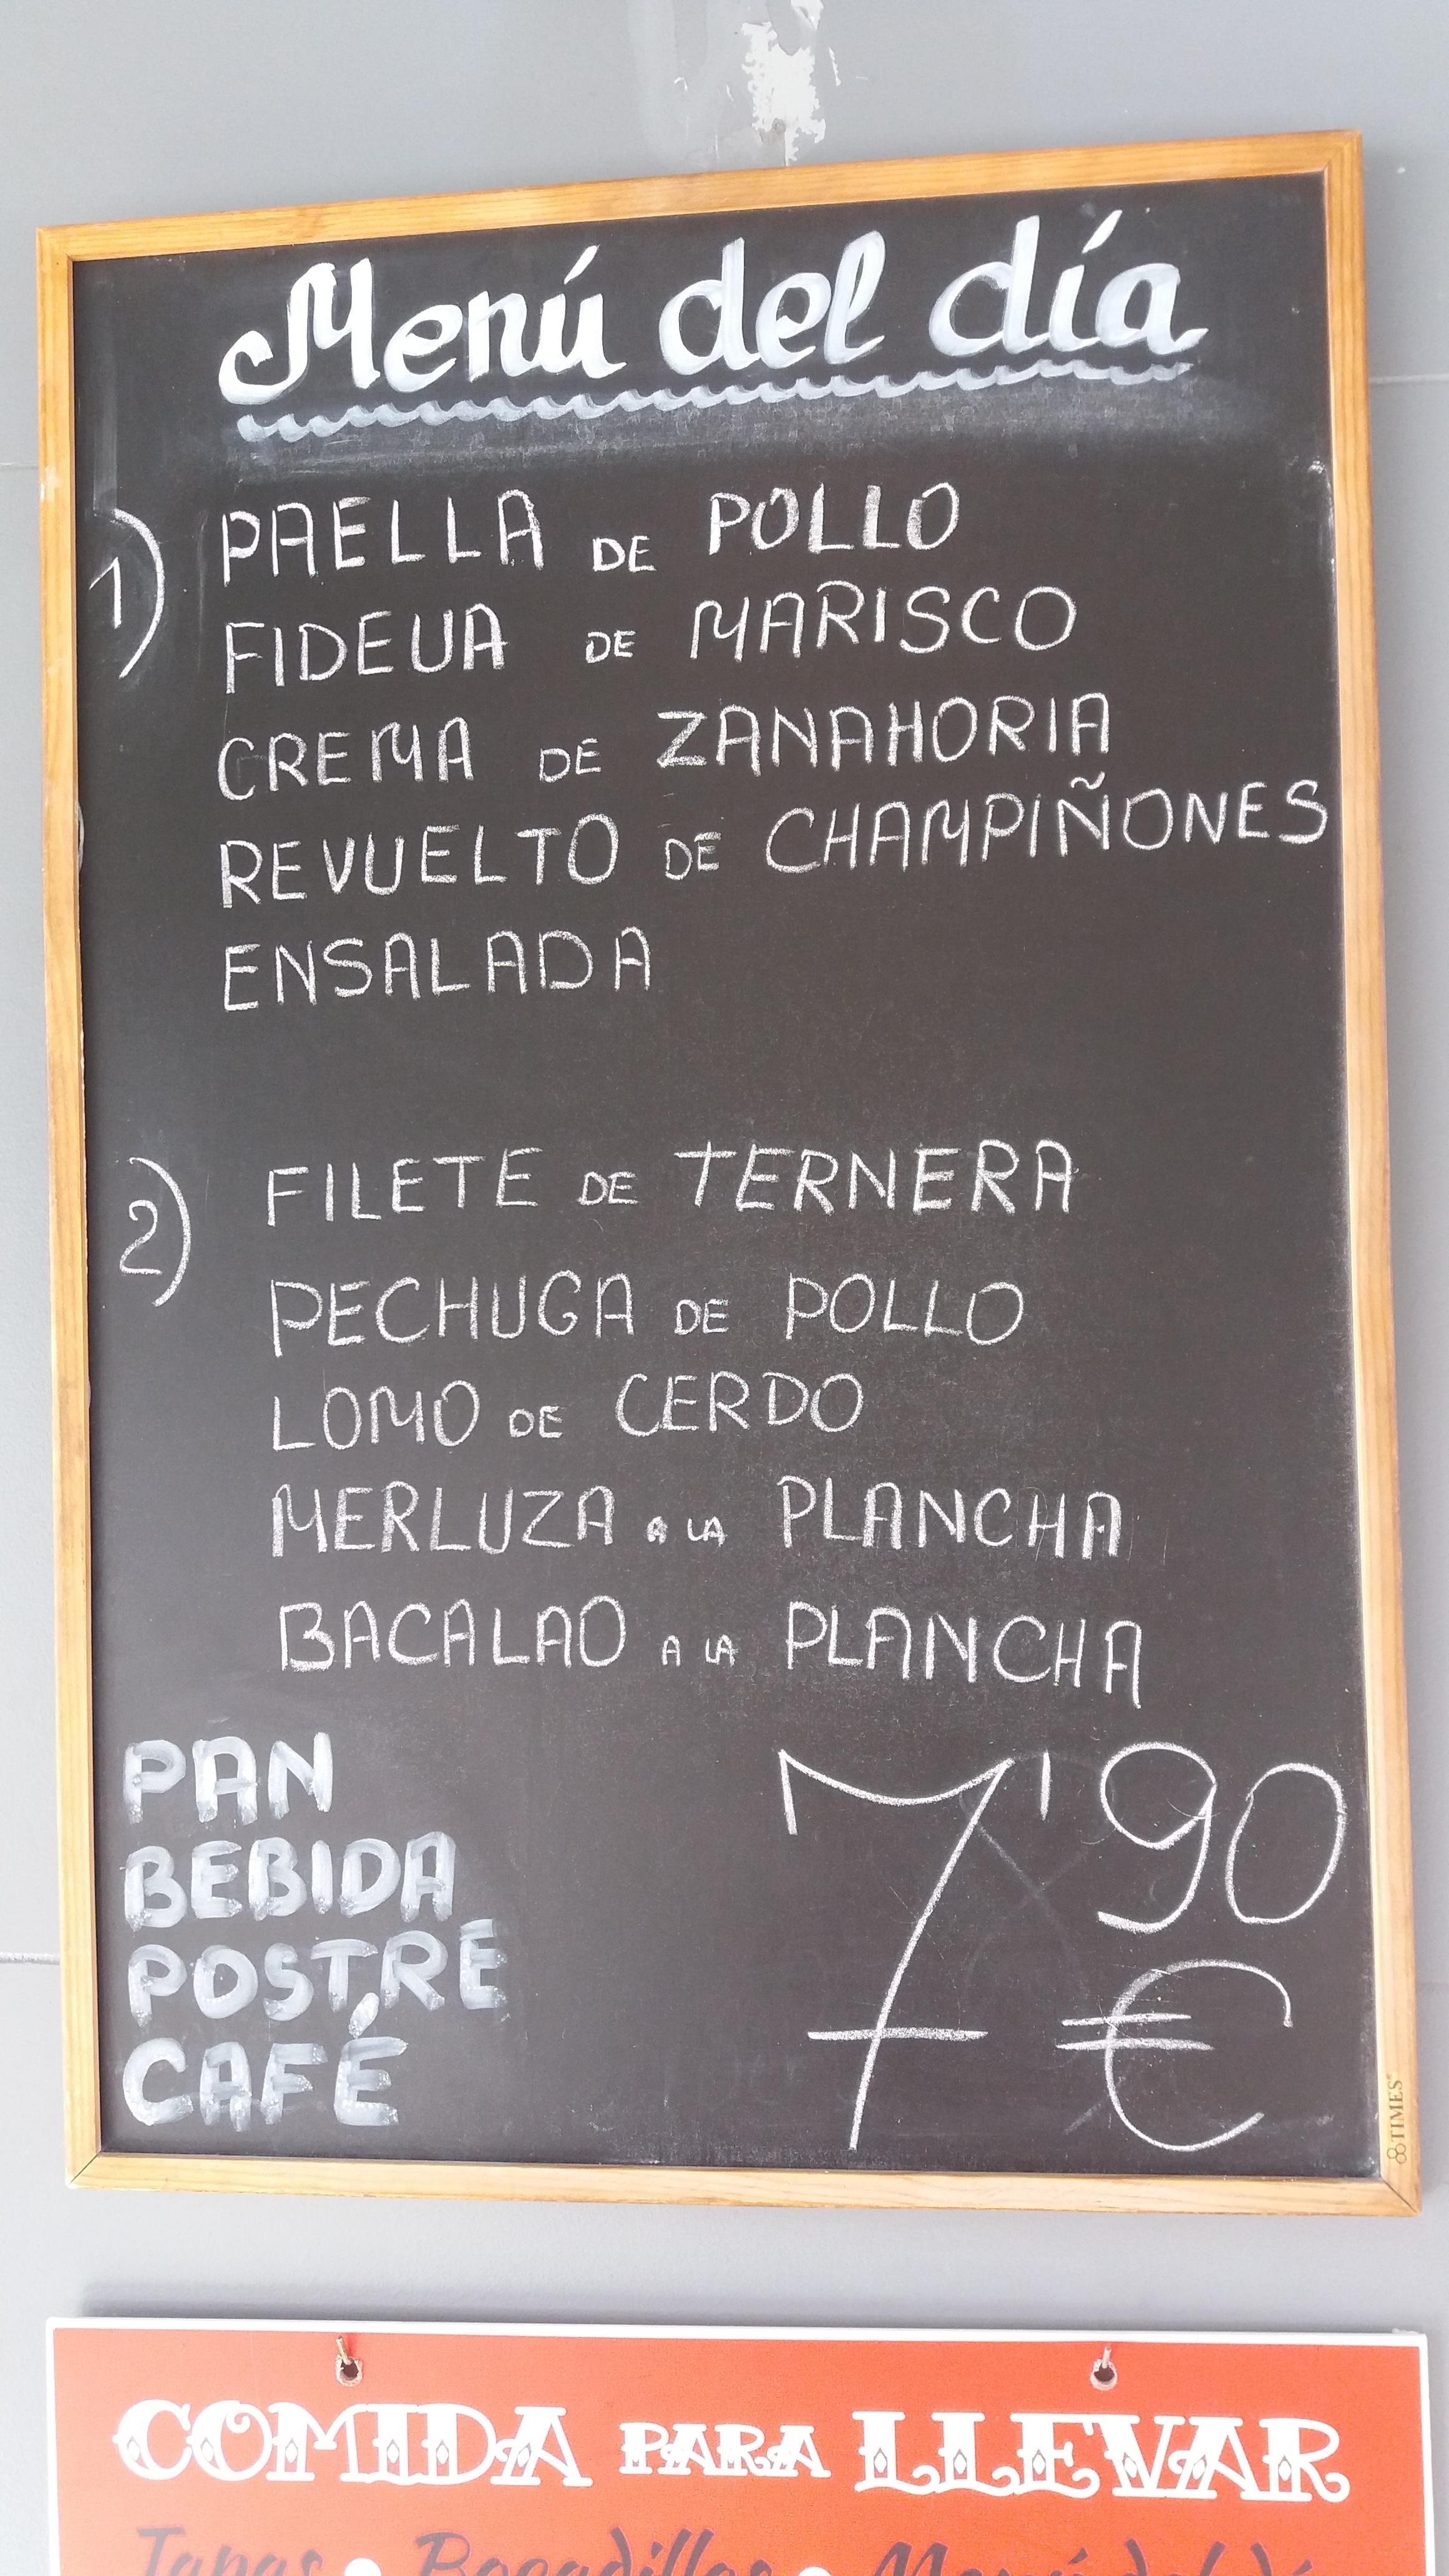 Menú del día
1) PAELLA DE POLLO
FIDEUA DE MARISCO
CREMA DE ZANAHORIA
REVUELTO DE CHAMPIÑONES
ENSALADA
2) FILETE DE TERNERA
PECHUGA DE POLLO
LOMO DE CERDO
MERLUZA A LA PLANCHA
BACALAO A LA PLANCHA
PAN
BEBIDA
POSTRE
CAFÉ
7'90
€
TIMES
COMIDA PARA LLEVAR
Tapas • Bocadillos • Menú del dí